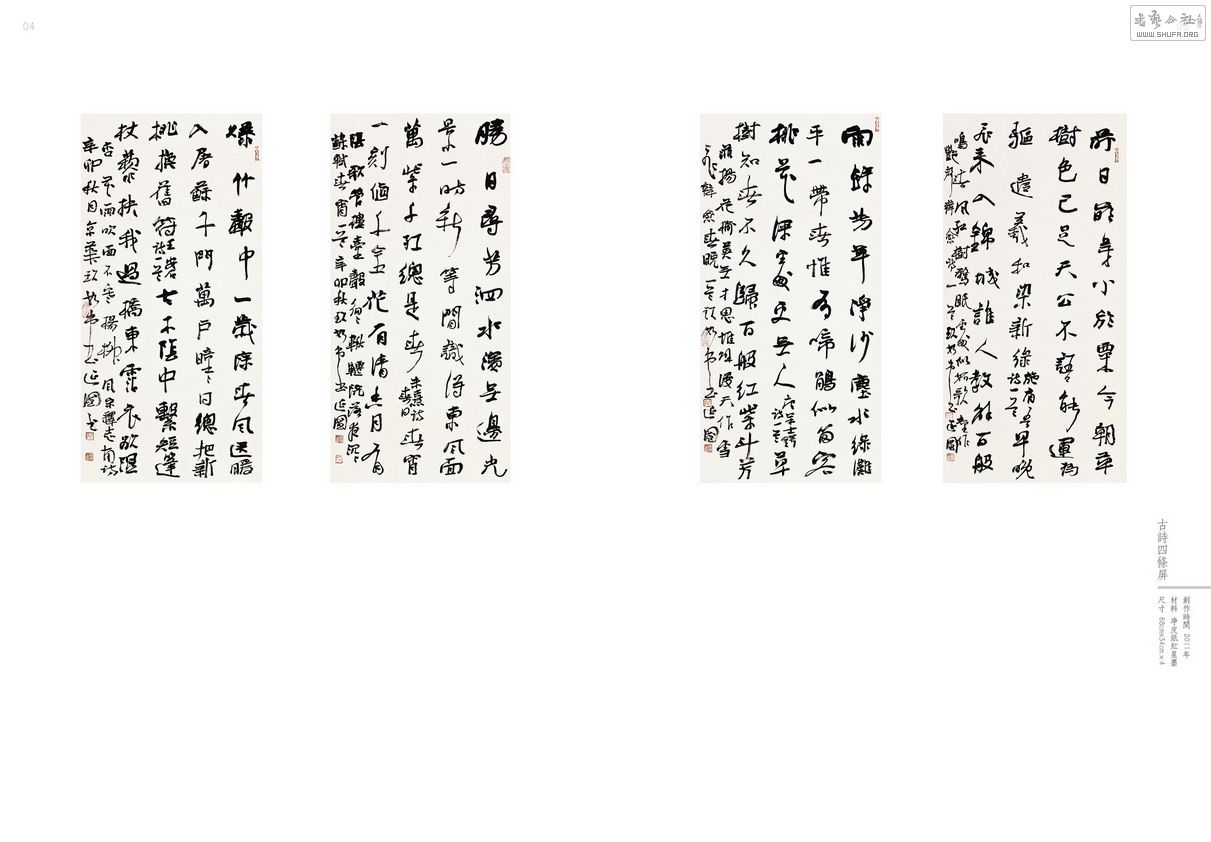 04
書藝公社
WWW.SHUFA.ORG
昨日笋小於粟今朝草
樹色已足天公不語能運爲
驅遣羲和染新綠施肩吾詩一首早晚
飛來入錦城誰人教解百般
鳴春風紅樹驚眠處似妬歌童作
艷聲
雨餘芳草淨沙塵水綠灘
平一帶春惟有啼鵑似留客
桃花深處更無人草
樹知春不久歸百般紅紫鬥芳
菲楊花榆莢無才思惟解漫天作雪
飛韓愈晚春一首延國
勝日尋芳泗水濱無邊光
景一時新等閒識得東風面
萬紫千紅總是春朱熹詩春日春宵
一刻值千金花有清香月有
陰歌管樓臺聲細細鞦韆院落夜沉沉
蘇軾春宵一首辛卯秋延國
爆竹聲中一歲除春風送暖
入屠蘇千門萬戶曈曈日總把新
桃換舊符王安石詩一首古木陰中繫短篷
杖藜扶我過橋東霑衣欲濕
杏花雨吹面不寒楊柳風宋釋志南詩
辛卯秋月延國
古詩四條屏
創作時間 2011年
材料 净皮紙紅星墨
尺寸 68cmx34cmx4